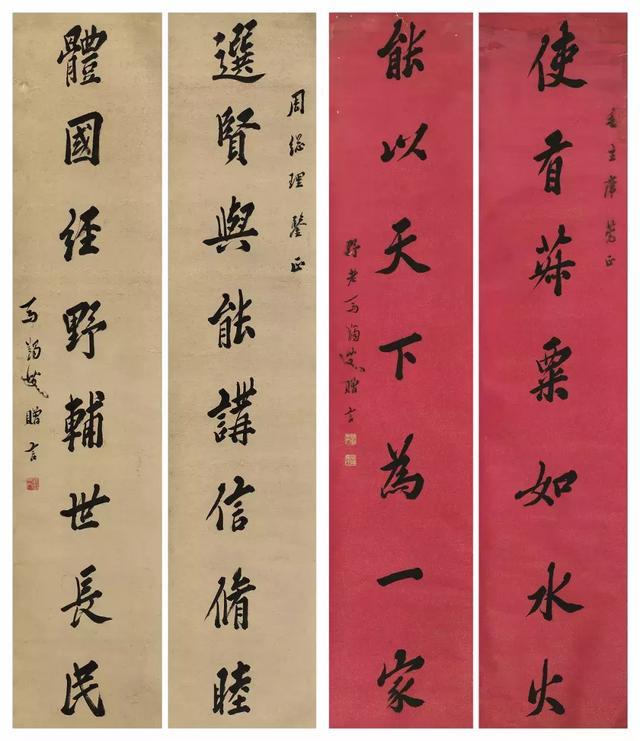 毛主席 正
使有菽粟如水火
能以天下為一家
野老馬蠲叟贈言
周總理鑒正
選賢與能講信脩睦
體國經野輔世長民
馬蠲叟贈言